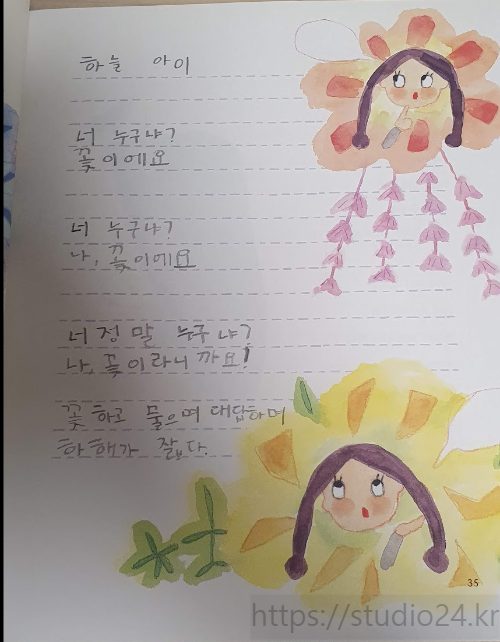 하늘 아이
너 누구냐?
꽃이에요
너 누구냐?
나, 꽃이에요
너 정말 누구냐?
나, 꽃이라니까요!
꽃하고 물으며 대답하며
하해가 짧다.
35
https://studio24.kr